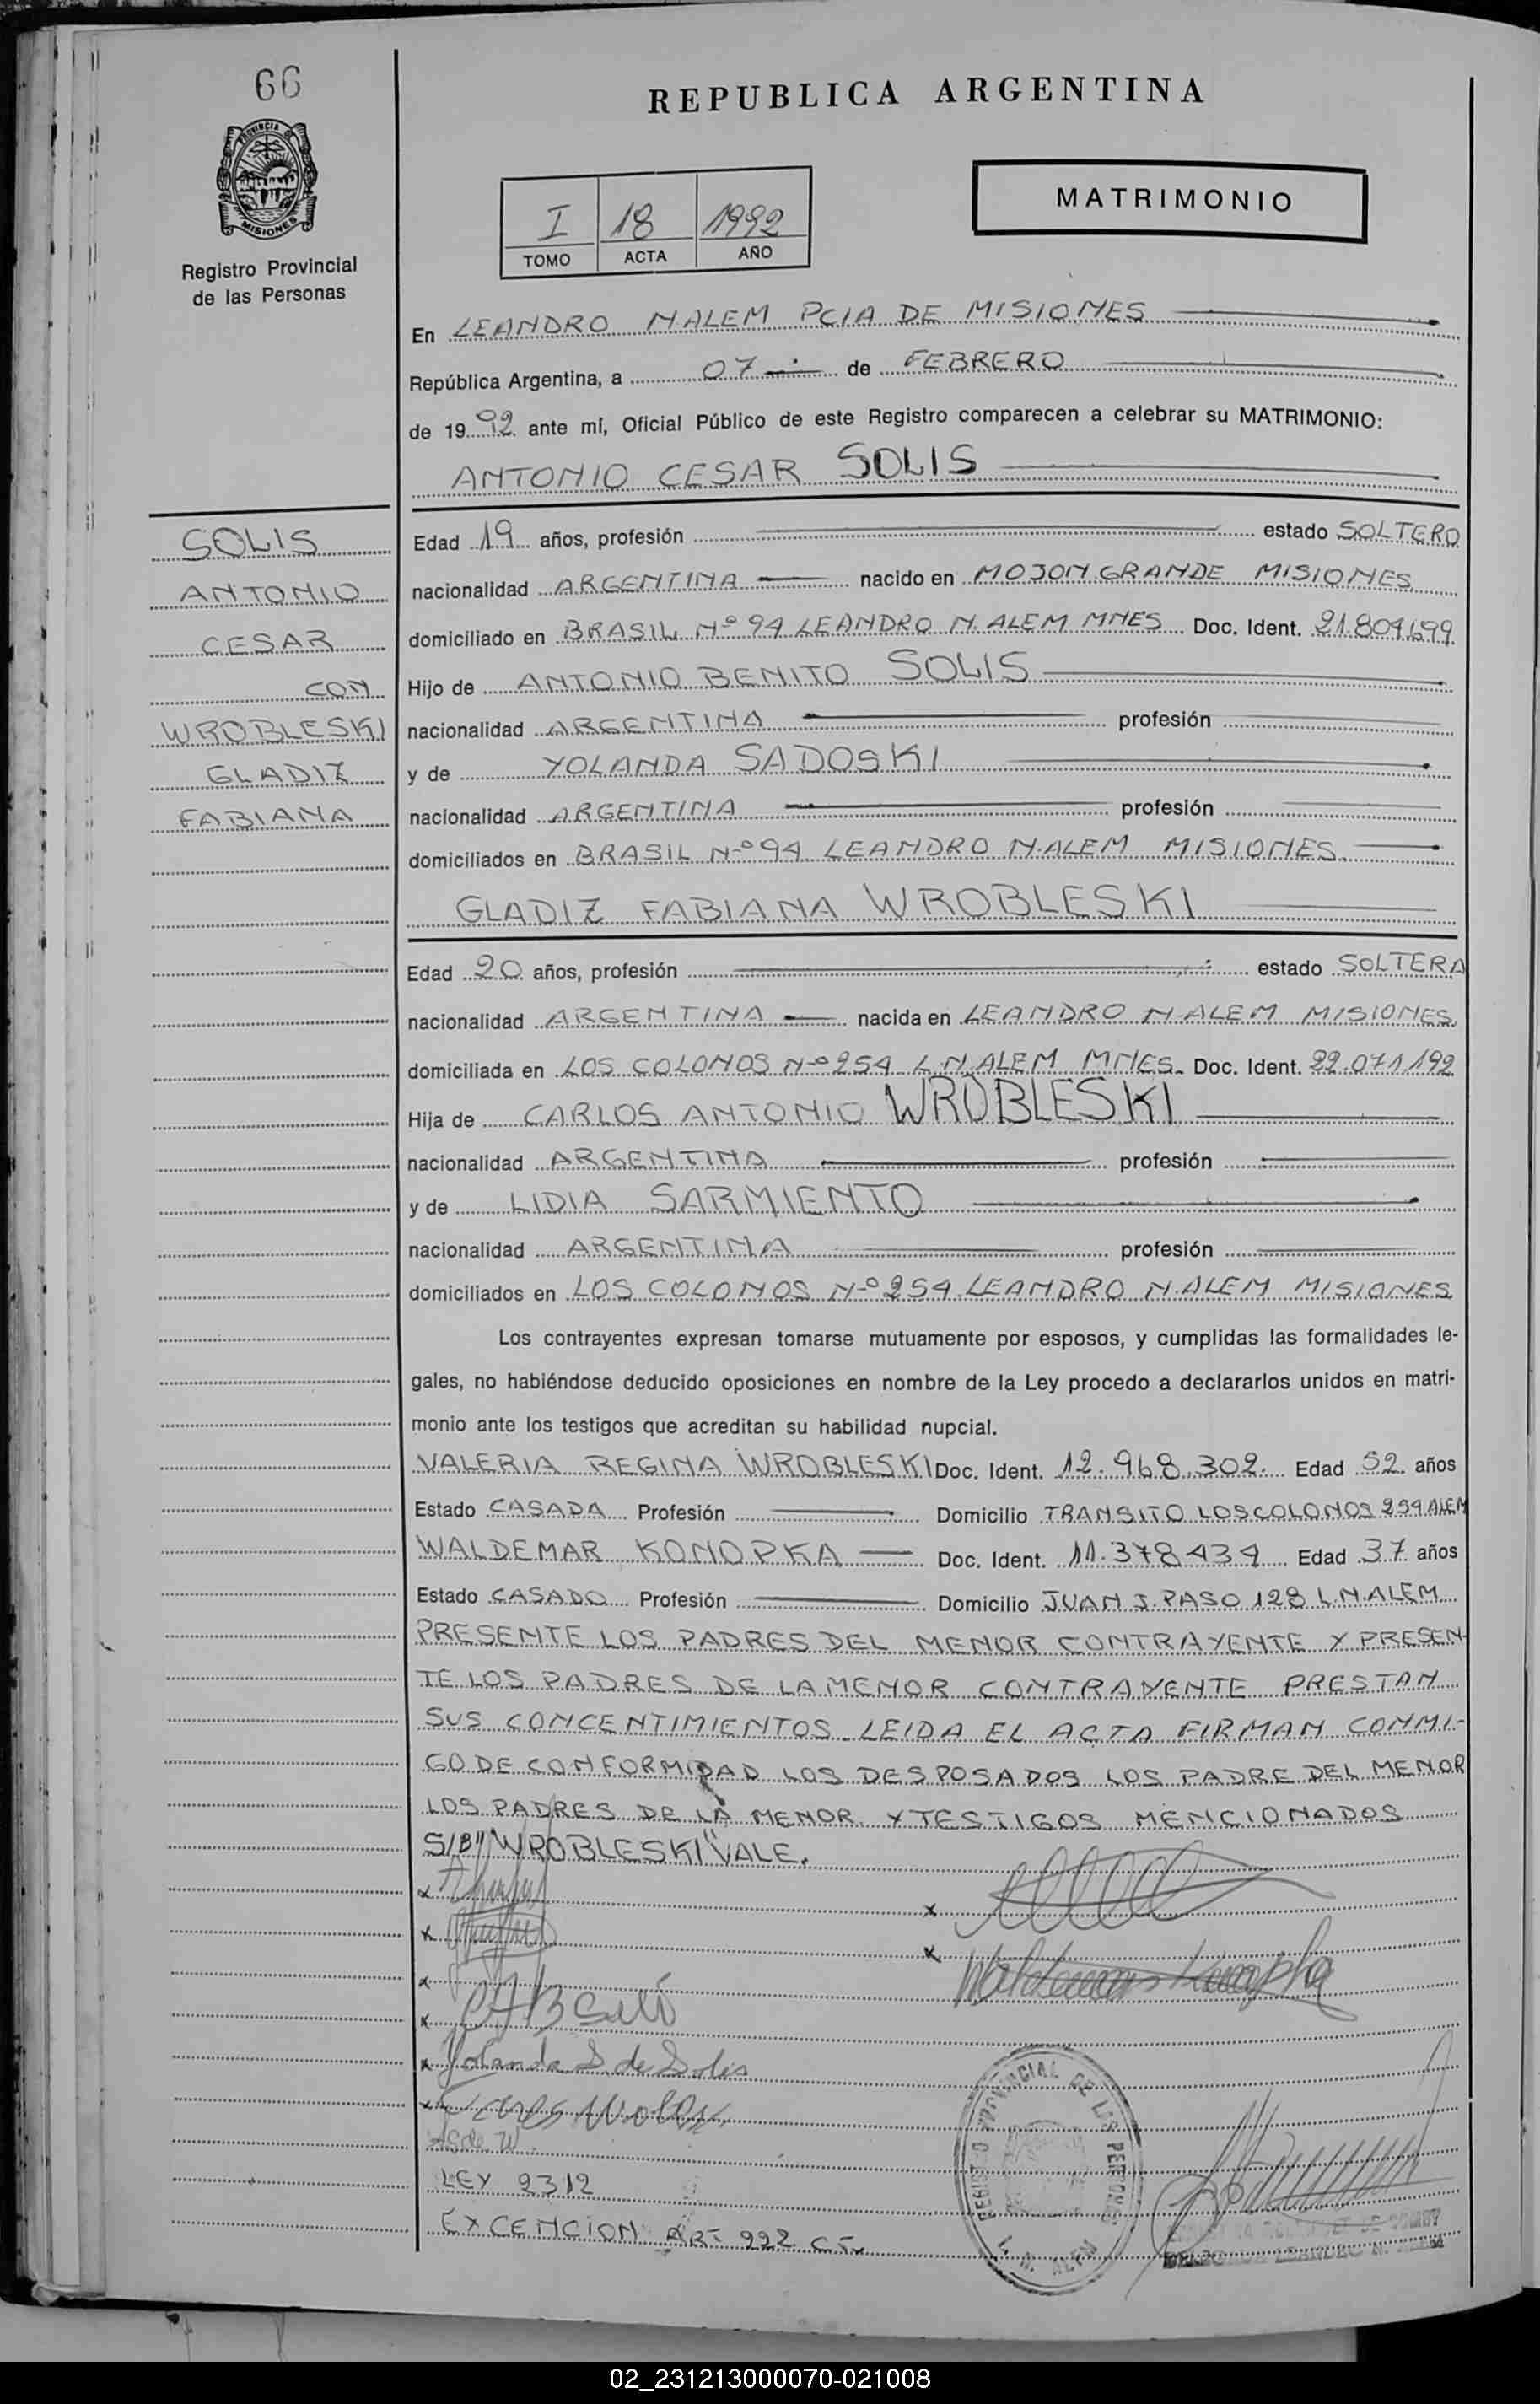 66
PROVINCIA DE
MISIONES
Registro Provincial
de las Personas
REPUBLICA ARGENTINA
I 18 1992
TOMO ACTA AÑO
MATRIMONIO
En LEANDRO N ALEM PCIA DE MISIONES
República Argentina, a 07 de FEBRERO
de 1992 ante mí, Oficial Público de este Registro comparecen a celebrar su MATRIMONIO:
ANTONIO CESAR SOLIS
SOLIS
ANTONIO
CESAR
CON
WROBLESKI
GLADIZ
FABIANA
Edad 19 años, profesión estado SOLTERO
nacionalidad ARGENTINA nacido en MOJON GRANDE MISIONES
domiciliado en BRASIL Nº 94 LEANDRO N. ALEM MNES Doc. Ident. 21.809.699
Hijo de ANTONIO BENITO SOLIS
nacionalidad ARGENTINA profesión
y de YOLANDA SADOSKI
nacionalidad ARGENTINA profesión
domiciliados en BRASIL Nº 94 LEANDRO N. ALEM MISIONES
GLADIZ FABIANA WROBLESKI
Edad 20 años, profesión estado SOLTERA
nacionalidad ARGENTINA nacida en LEANDRO N ALEM MISIONES
domiciliada en LOS COLONOS Nº 254 L.N. ALEM MNES. Doc. Ident. 22.071.192
Hija de CARLOS ANTONIO WROBLESKI
nacionalidad ARGENTINA profesión
y de LIDIA SARMIENTO
nacionalidad ARGENTINA profesión
domiciliados en LOS COLONOS Nº 254 LEANDRO N. ALEM MISIONES
Los contrayentes expresan tomarse mutuamente por esposos, y cumplidas las formalidades le-
gales, no habiéndose deducido oposiciones en nombre de la Ley procedo a declararlos unidos en matri-
monio ante los testigos que acreditan su habilidad nupcial.
VALERIA REGINA WROBLESKI Doc. Ident. 12.968.302. Edad 52 años
Estado CASADA Profesión Domicilio TRANSITO LOS COLONOS 254 ALEM
WALDEMAR KONOPKA Doc. Ident. 11.378434 Edad 37 años
Estado CASADO Profesión Domicilio JUAN J. PASO 128 L.N. ALEM
PRESENTE LOS PADRES DEL MENOR CONTRAYENTE Y PRESEN-
TE LOS PADRES DE LA MENOR CONTRAYENTE PRESTAN
SUS CONCENTIMIENTOS LEIDA EL ACTA FIRMAN CONMI-
GO DE CONFORMIDAD LOS DESPOSADOS LOS PADRE DEL MENOR
LOS PADRES DE LA MENOR Y TESTIGOS MENCIONADOS
S/B "WROBLESKI" VALE.
Waldemar Konopka
Yolanda S. de Solis
LEY 2312
EXCENCION ART 992 C.
REGISTRO PROVINCIAL DE LAS PERSONAS
L. N. ALEM
LEANDRO N. ALEM
02_231213000070-021008